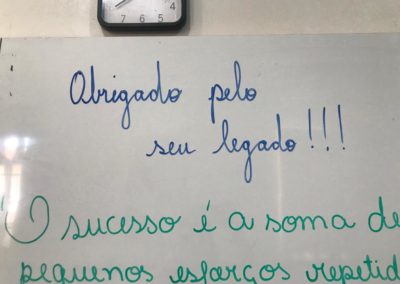 4
7 6 5
Obrigado pelo
seu legado!!!
"O sucesso é a soma de
pequenos esforços repetid